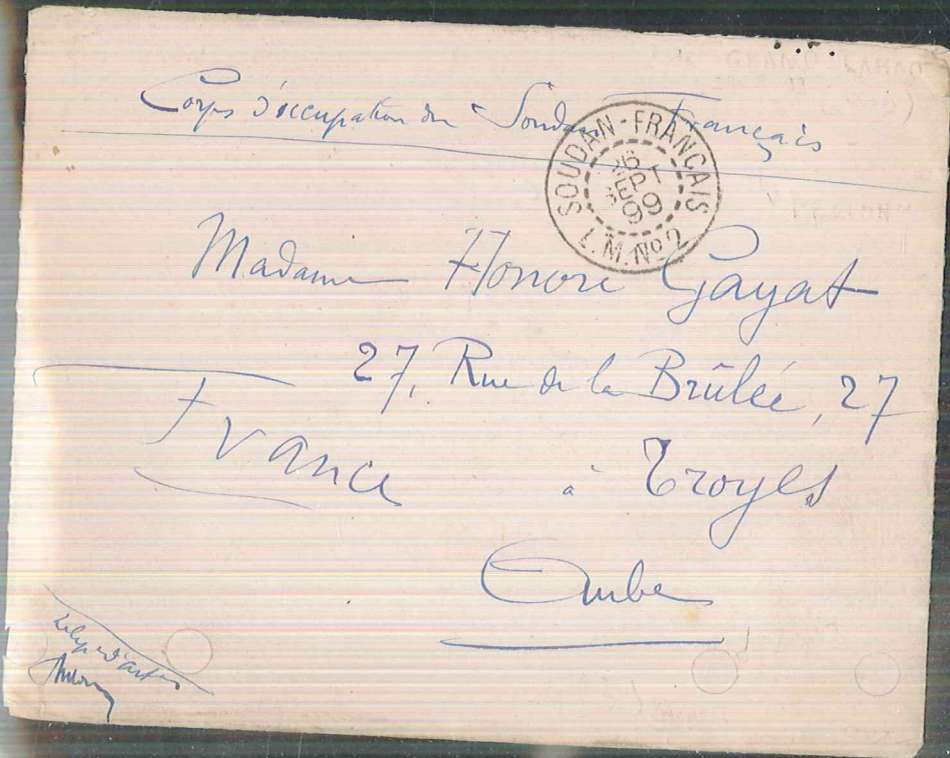 Corps d'occupation du Soudan Français
SOUDAN-FRANCAIS
SEPT
99
L.M.Nº2
Madame Honoré Gayat
27, Rue de la Brûlée, 27
France à Troyes
Aube